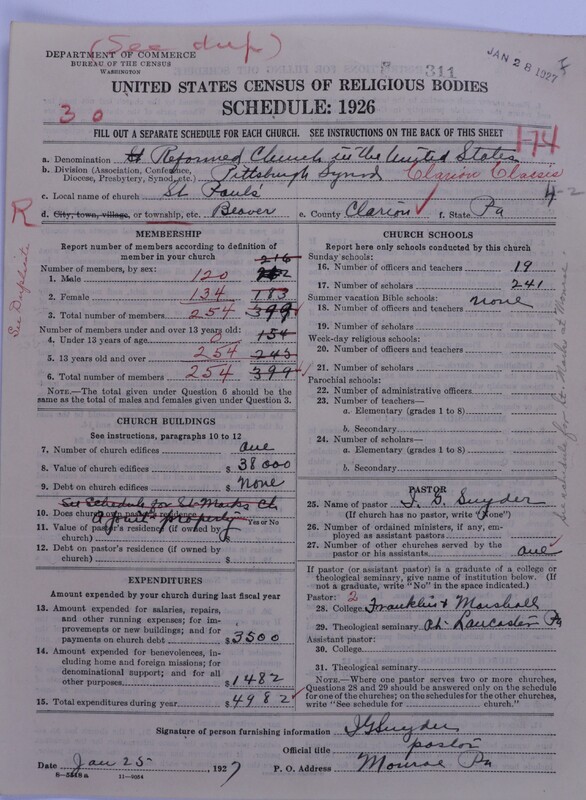 (See dup)
DEPARTMENT OF COMMERCE
BUREAU OF THE CENSUS
WASHINGTON
311
JAN 28 1927
UNITED STATES CENSUS OF RELIGIOUS BODIES
SCHEDULE: 1926
3 0
FILL OUT A SEPARATE SCHEDULE FOR EACH CHURCH. SEE INSTRUCTIONS ON THE BACK OF THIS SHEET
174
a. Denomination Reformed Church in the United States
b. Division (Association, Conference, Diocese, Presbytery, Synod, etc.) Pittsburgh Synod Clarion Classis
4-2
c. Local name of church St Pauls'
R
d. City, town, village, or township, etc. Beaver e. County Clarion f. State Pa
See Duplicate
MEMBERSHIP
Report number of members according to definition of member in your church
216
Number of members, by sex:
1. Male 120
2. Female 134 183
3. Total number of members 254 399
Number of members under and over 13 years old:
4. Under 13 years of age 0 154
5. 13 years old and over 254 243
6. Total number of members 254 399
NOTE.—The total given under Question 6 should be the same as the total of males and females given under Question 3.
CHURCH BUILDINGS
See instructions, paragraphs 10 to 12
7. Number of church edifices one
8. Value of church edifices $ 38000
9. Debt on church edifices $ None
See Schedule for St Marks Ch
10. Does church own pastor's residence? Yes or No
a joint property
11. Value of pastor's residence (if owned by church) $
12. Debt on pastor's residence (if owned by church) $
EXPENDITURES
Amount expended by your church during last fiscal year
13. Amount expended for salaries, repairs, and other running expenses; for improvements or new buildings; and for payments on church debt $ 3500
14. Amount expended for benevolences, including home and foreign missions; for denominational support; and for all other purposes $ 1482
15. Total expenditures during year $ 4982
CHURCH SCHOOLS
Report here only schools conducted by this church
Sunday schools:
16. Number of officers and teachers 19
17. Number of scholars 241
Summer vacation Bible schools:
18. Number of officers and teachers none
19. Number of scholars
Week-day religious schools:
20. Number of officers and teachers
21. Number of scholars
Parochial schools:
22. Number of administrative officers
23. Number of teachers—
a. Elementary (grades 1 to 8)
b. Secondary
24. Number of scholars—
a. Elementary (grades 1 to 8)
b. Secondary
See schedule for St. Marks at Monroe
PASTOR
25. Name of pastor J. G. Snyder
(If church has no pastor, write "None")
26. Number of ordained ministers, if any, employed as assistant pastors
27. Number of other churches served by the pastor or his assistants one
If pastor (or assistant pastor) is a graduate of a college or theological seminary, give name of institution below. (If not a graduate, write "No" in the space indicated.)
Pastor: 2
28. College Franklin & Marshall
29. Theological seminary at Lancaster Pa
Assistant pastor:
30. College
31. Theological seminary
NOTE.—Where one pastor serves two or more churches, Questions 28 and 29 should be answered only on the schedule for one of the churches; on the schedules for the other churches, write "See schedule for church."
Signature of person furnishing information J G Snyder
Official title pastor
Date Jan 25 1927 P. O. Address Monroe Pa
8—5518a 11—9084